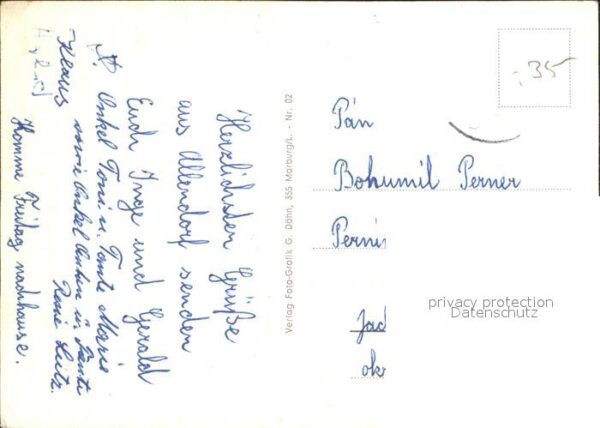 Herzlichsten Grüße
aus Allendorf senden
Euch Inge und Gerald
Onkel Toni u. Tante Marie
Klaus sowie Onkel
René Lutz.
Komme Freitag nachhause.
Verlag Foto-Grafik G. Dähn, 355 Marburg/L. - Nr. 02
-.35
Pán
Bohumil Perner
Perni
Jad
okr
privacy protection
Datenschutz